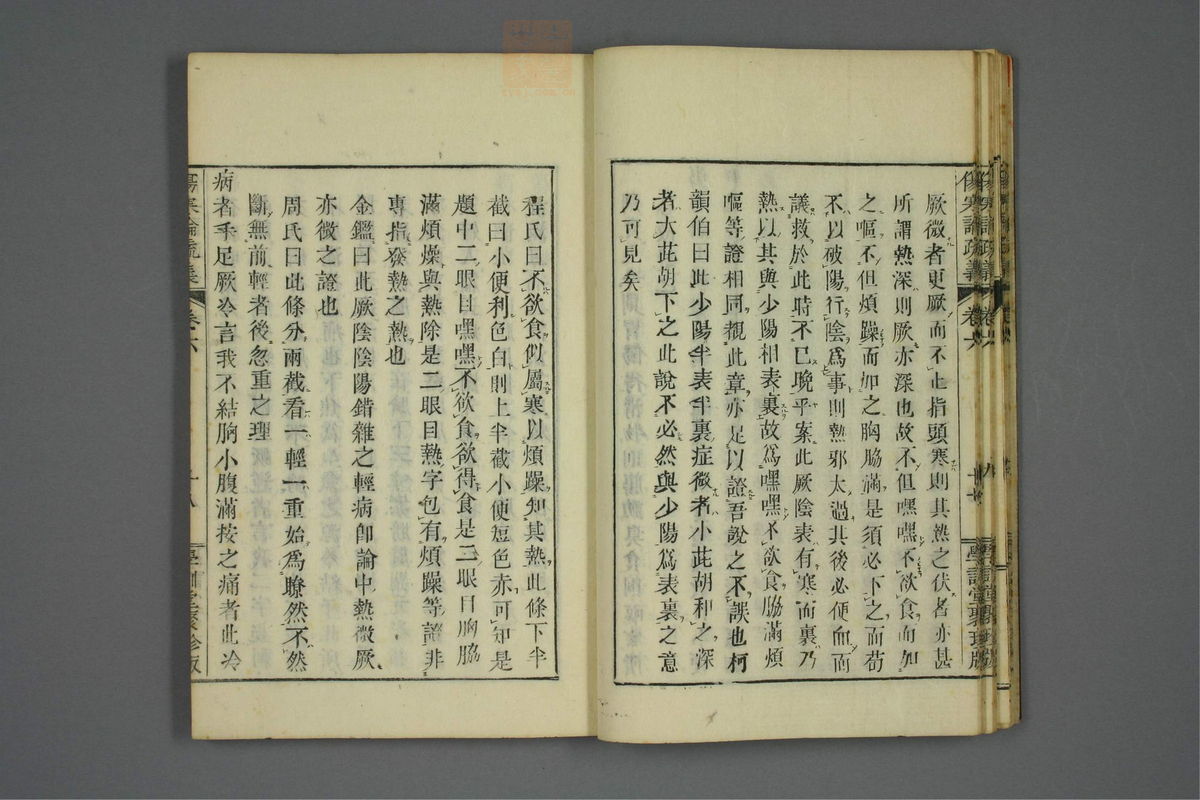 厥微者更厥而不止指頭寒則其熱之伏者亦甚
所謂熱深則厥亦深也故不但嘿嘿不欲食而加
之嘔不但煩躁而加之胸脇滿是須必下之而苟
不以破陽行陰爲事則熱邪太過其後必便血而
議救於此時不已晚乎案此厥陰表有寒而裏乃
熱以其與少陽相表裏故爲嘿嘿不欲食脇滿煩
嘔等證相同觀此章亦足以證吾說之不誤也柯
韻伯曰此少陽半表半裏症微者小茈胡和之深
者大茈胡下之此說不必然與少陽爲表裏之意
乃可見矣
程氏曰不欲食似屬寒以煩躁知其熱此條下半
截曰小便利色白則上半截小便短色赤可知是
題中二眼目嘿嘿不欲食欲得食是二眼目胸脇
滿煩燥與熱除是二眼目熱字包有煩躁等證非
專指發熱之熱也
金鑑曰此厥陰陰陽錯雜之輕病卽論中熱微厥
亦微之證也
周氏曰此條分兩截看一輕一重始爲瞭然不然
斷無前輕者後忽重之理
病者手足厥冷言我不結胸小腹滿按之痛者此冷
傷寒論疏義
卷六
十八